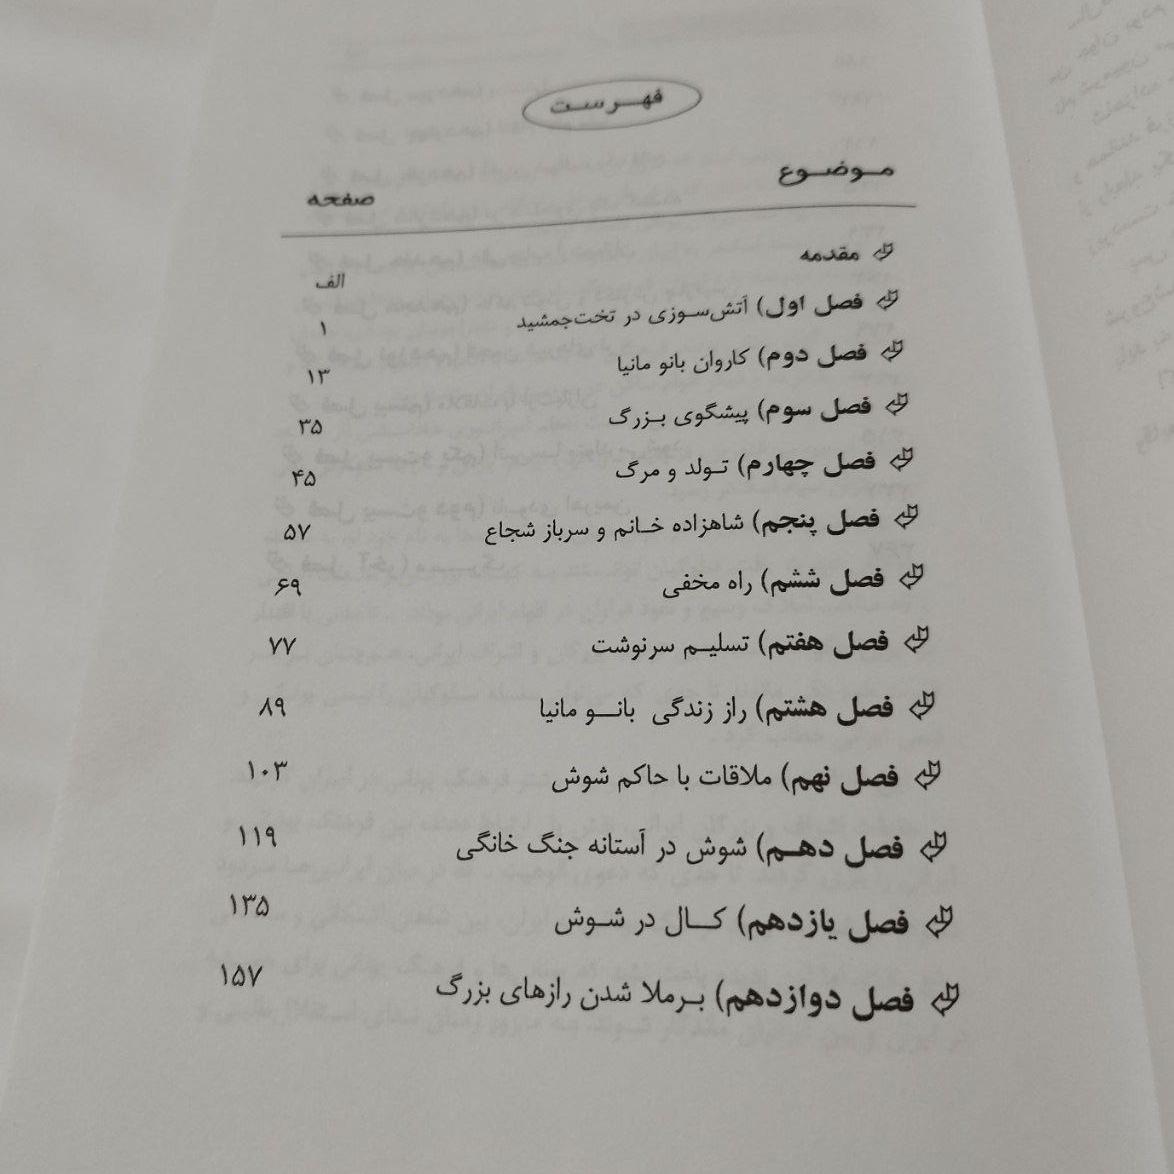 فهرست
موضوع صفحه
مقدمه الف
فصل اول) آتش‌سوزی در تخت‌جمشید ۱
فصل دوم) کاروان بانو مانیا ۱۳
فصل سوم) پیشگوی بزرگ ۳۵
فصل چهارم) تولد و مرگ ۴۵
فصل پنجم) شاهزاده خانم و سرباز شجاع ۵۷
فصل ششم) راه مخفی ۶۹
فصل هفتم) تسلیم سرنوشت ۷۷
فصل هشتم) راز زندگی بانو مانیا ۸۹
فصل نهم) ملاقات با حاکم شوش ۱۰۳
فصل دهم) شوش در آستانه جنگ خانگی ۱۱۹
فصل یازدهم) کال در شوش ۱۳۵
فصل دوازدهم) برملا شدن رازهای بزرگ ۱۵۷